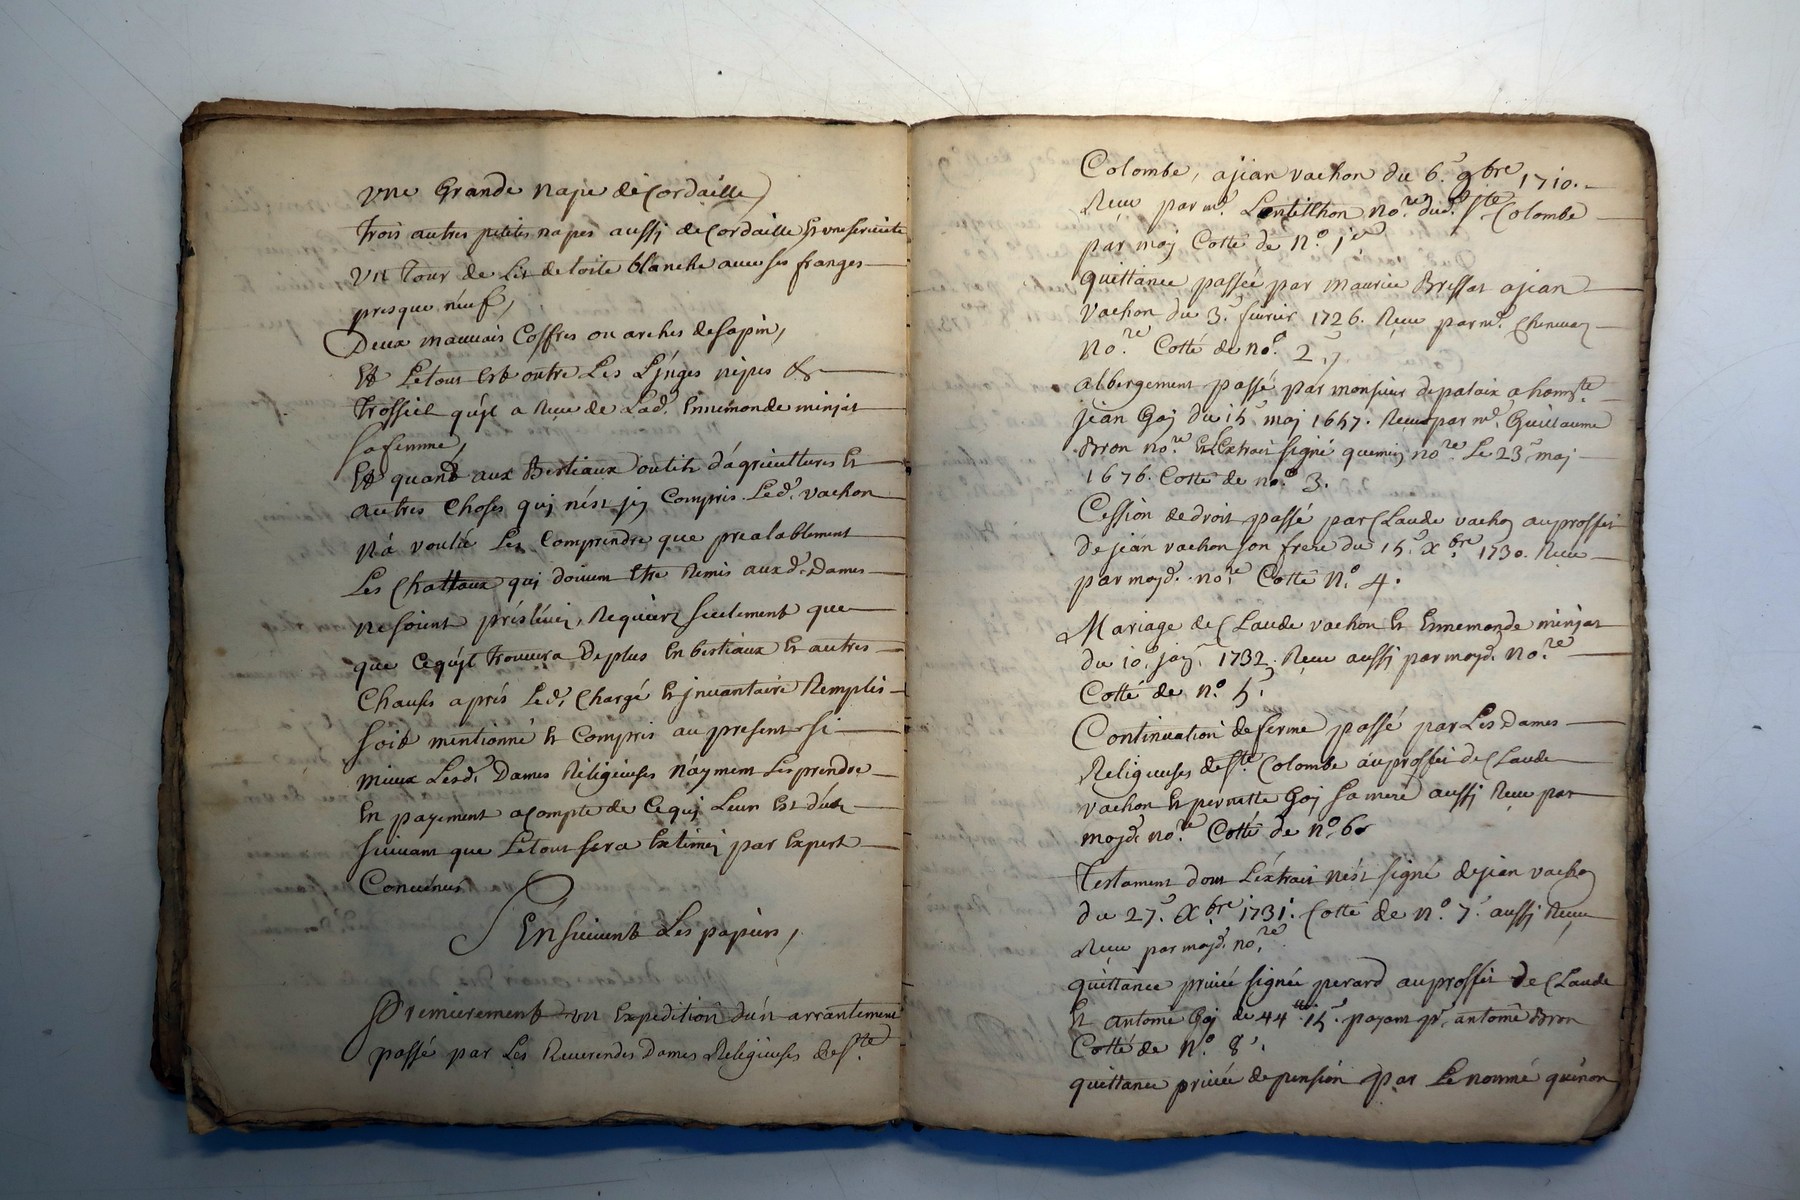 une Grande nape de Cordaille
trois autres petites napes aussi de Cordaille et une serviete
un tour de Lit de toile blanche avec ses franges
presque neuf,
Deux mauvais Coffres ou arches de sapin,
Et Le tout est outre Les Linges nipes &
trossiel qu'jl a Receu de Lad.e Ennemonde minjat
sa femme,
Et quand aux Bestiaux outils d'agricultures et
autres Choses quj n'est jcy Compris Led.t vachon
n'a voulu Les Comprendre que prealablement
Les Chattaux quj doivem être Remis aux d.es Dames
ne soient préslévés, Requiert seulement que
que Ce qu'jl trouvera De plus En bestiaux et autres
Chauses aprés Led.t Chargé et jnvantaire Remplis
soit mentionné et Compris au present si
mieux Lesd.es Dames Religieuses n'ayment Les prendre
En payement a compte de Ce quj Leur Est dub
suivant que Le tout sera Extimé par Expert
Convenus
Ensuivent Les papiers,
Premierement un Expedition d'un arrantement
passé par Les Reverendes Dames Religieuses de S.te
Colombe, a jean vachon du 6.e 9.bre 1710.
Receu par m.e Lentillhon no.re dud. S.te Colombe
par moj Cotté de N.o 1.er
quittance passée par maurice Bressat a jean
vachon du 3.e fevrier 1726. Receu par m.e Chenevaz
No.re Cotté de no. 2,
albergement passé par monsieur de palaix a hom.ste
jean Goj du 15 maj 1657. Receu par m.e Guillaume
Bron no.re et L'Extrait signé quemin no.re Le 23 maj
1676. Cotté de no. 3.
Cession de droit passé par Claude vachon au proffit
de jean vachon son frere du 15.e X.bre 1730. Receu
par moyd. no.re Cotté N.o 4.
Mariage de Claude vachon et Ennemonde minjat
du 10. jan. 1732. Receu aussj par moyd. no.re
Cotté de n.o 5.
Continuation de ferme passé par Les Dames
Religieuses de S.te Colombe au proffit de Claude
vachon et pernette Goj sa mere aussj Receu par
moyd. no.re Cotté de n.o 6
Testament dont L'éxtrait n'est signé de jean vachon
du 27.e X.bre 1731. Cotté de N.o 7. aussj Receu
Receu par moyd. no.re
quittance privée signée perard au proffit de Claude
et antoine Goj de 44 tt 15.s payant p.r antoine Bron
Cotté de N.o 8.
quittance privée de pension par Le nommé quenon